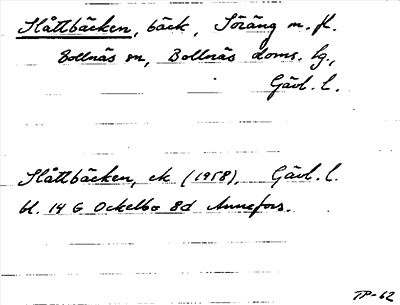 Slåttbäcken, bäck, Söräng m. fl.
Bollnäs sn, Bollnäs doms. hg.,
Gävl. l.
Slåttbäcken, ek (1958), Gävl. l.
bl. 14 G Ockelbo 8d Annefors.
TP-62